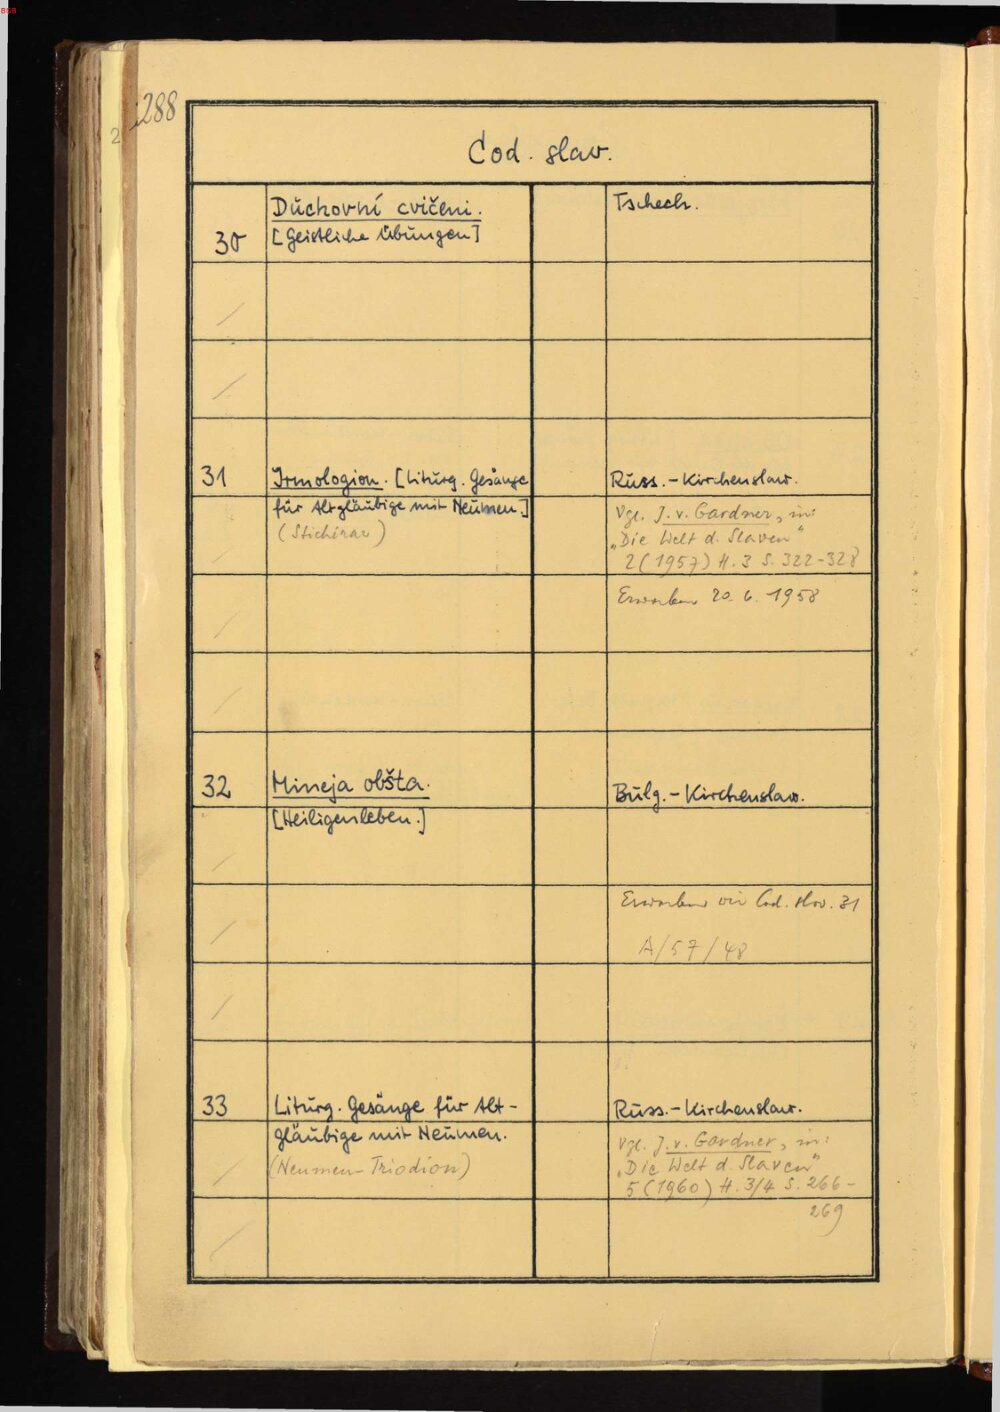 BSB
288
2
Cod. slav.
30
Duchovní cvičeni.
[Geistliche Übungen]
Tschech.
31
Irmologion. [Liturg. Gesänge
für Altgläubige mit Neumen.]
(Stichirar)
Russ.-Kirchenslaw.
Vgl. J. v. Gardner, in:
„Die Welt d. Slaven"
2 (1957) H. 3 S. 322-328
Erworben 20. 6. 1958
32
Mineja obšta.
[Heiligenleben.]
Bulg.-Kirchenslaw.
Erworben wie Cod. slav. 31
A/57/48
33
Liturg. Gesänge für Alt-
gläubige mit Neumen.
(Neumen-Triodion)
Russ.-Kirchenslaw.
Vgl. J. v. Gardner, in:
„Die Welt d. Slaven"
5 (1960) H. 3/4 S. 266-
269